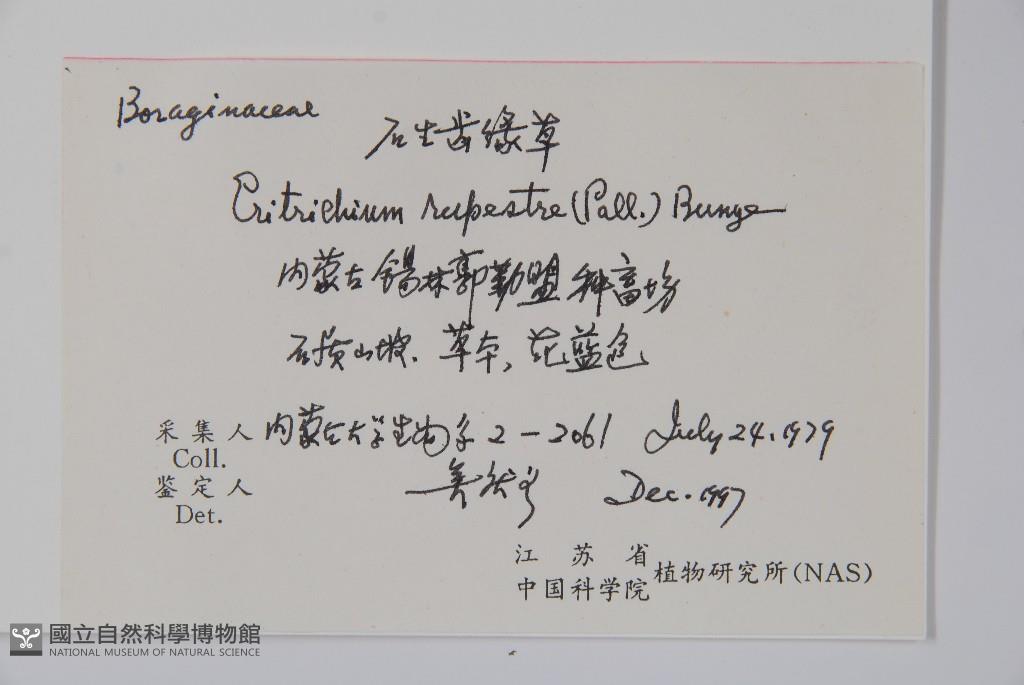 Boraginaceae
石生齿缘草
Eritrichium rupestre (Pall.) Bunge
内蒙古锡林郭勒盟种畜场
石质山坡、草本，花蓝色
采集人 内蒙古大学生物系 2-2061 July 24.1979
Coll.
鉴定人 Dec. 1997
Det.
江苏省
中国科学院 植物研究所(NAS)
國立自然科學博物館
NATIONAL MUSEUM OF NATURAL SCIENCE